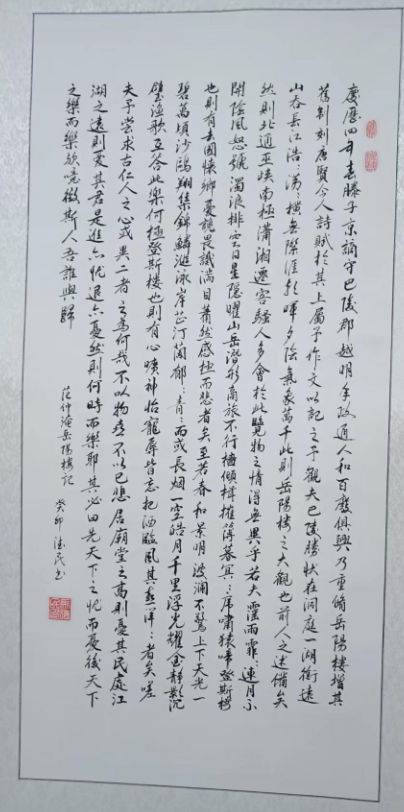 慶歷四年春滕子京謫守巴陵郡越明年政通人和百廢俱興乃重脩岳陽樓增其
舊制刻唐賢今人詩賦於其上屬予作文以記之予觀夫巴陵勝狀在洞庭一湖銜遠
山吞長江浩浩湯湯橫無際涯朝暉夕陰氣象萬千此則岳陽樓之大觀也前人之述備矣
然則北通巫峽南極瀟湘遷客騷人多會於此覽物之情得無異乎若夫霪雨霏霏連月不
開陰風怒號濁浪排空日星隱曜山岳潛形商旅不行檣傾楫摧薄暮冥冥虎嘯猿啼登斯樓
也則有去國懷鄉憂讒畏譏滿目蕭然感極而悲者矣至若春和景明波瀾不驚上下天光一
碧萬頃沙鷗翔集錦鱗游泳岸芷汀蘭郁郁青青而或長烟一空皓月千里浮光耀金靜影沉
璧漁歌互答此樂何極登斯樓也則有心曠神怡寵辱皆忘把酒臨風其喜洋洋者矣嗟
夫予嘗求古仁人之心或異二者之為何哉不以物喜不以己悲居廟堂之高則憂其民處江
湖之遠則憂其君是進亦憂退亦憂然則何時而樂耶其必曰先天下之憂而憂後天下
之樂而樂歟噫微斯人吾誰與歸
范仲淹岳陽樓記
癸卯 德民書